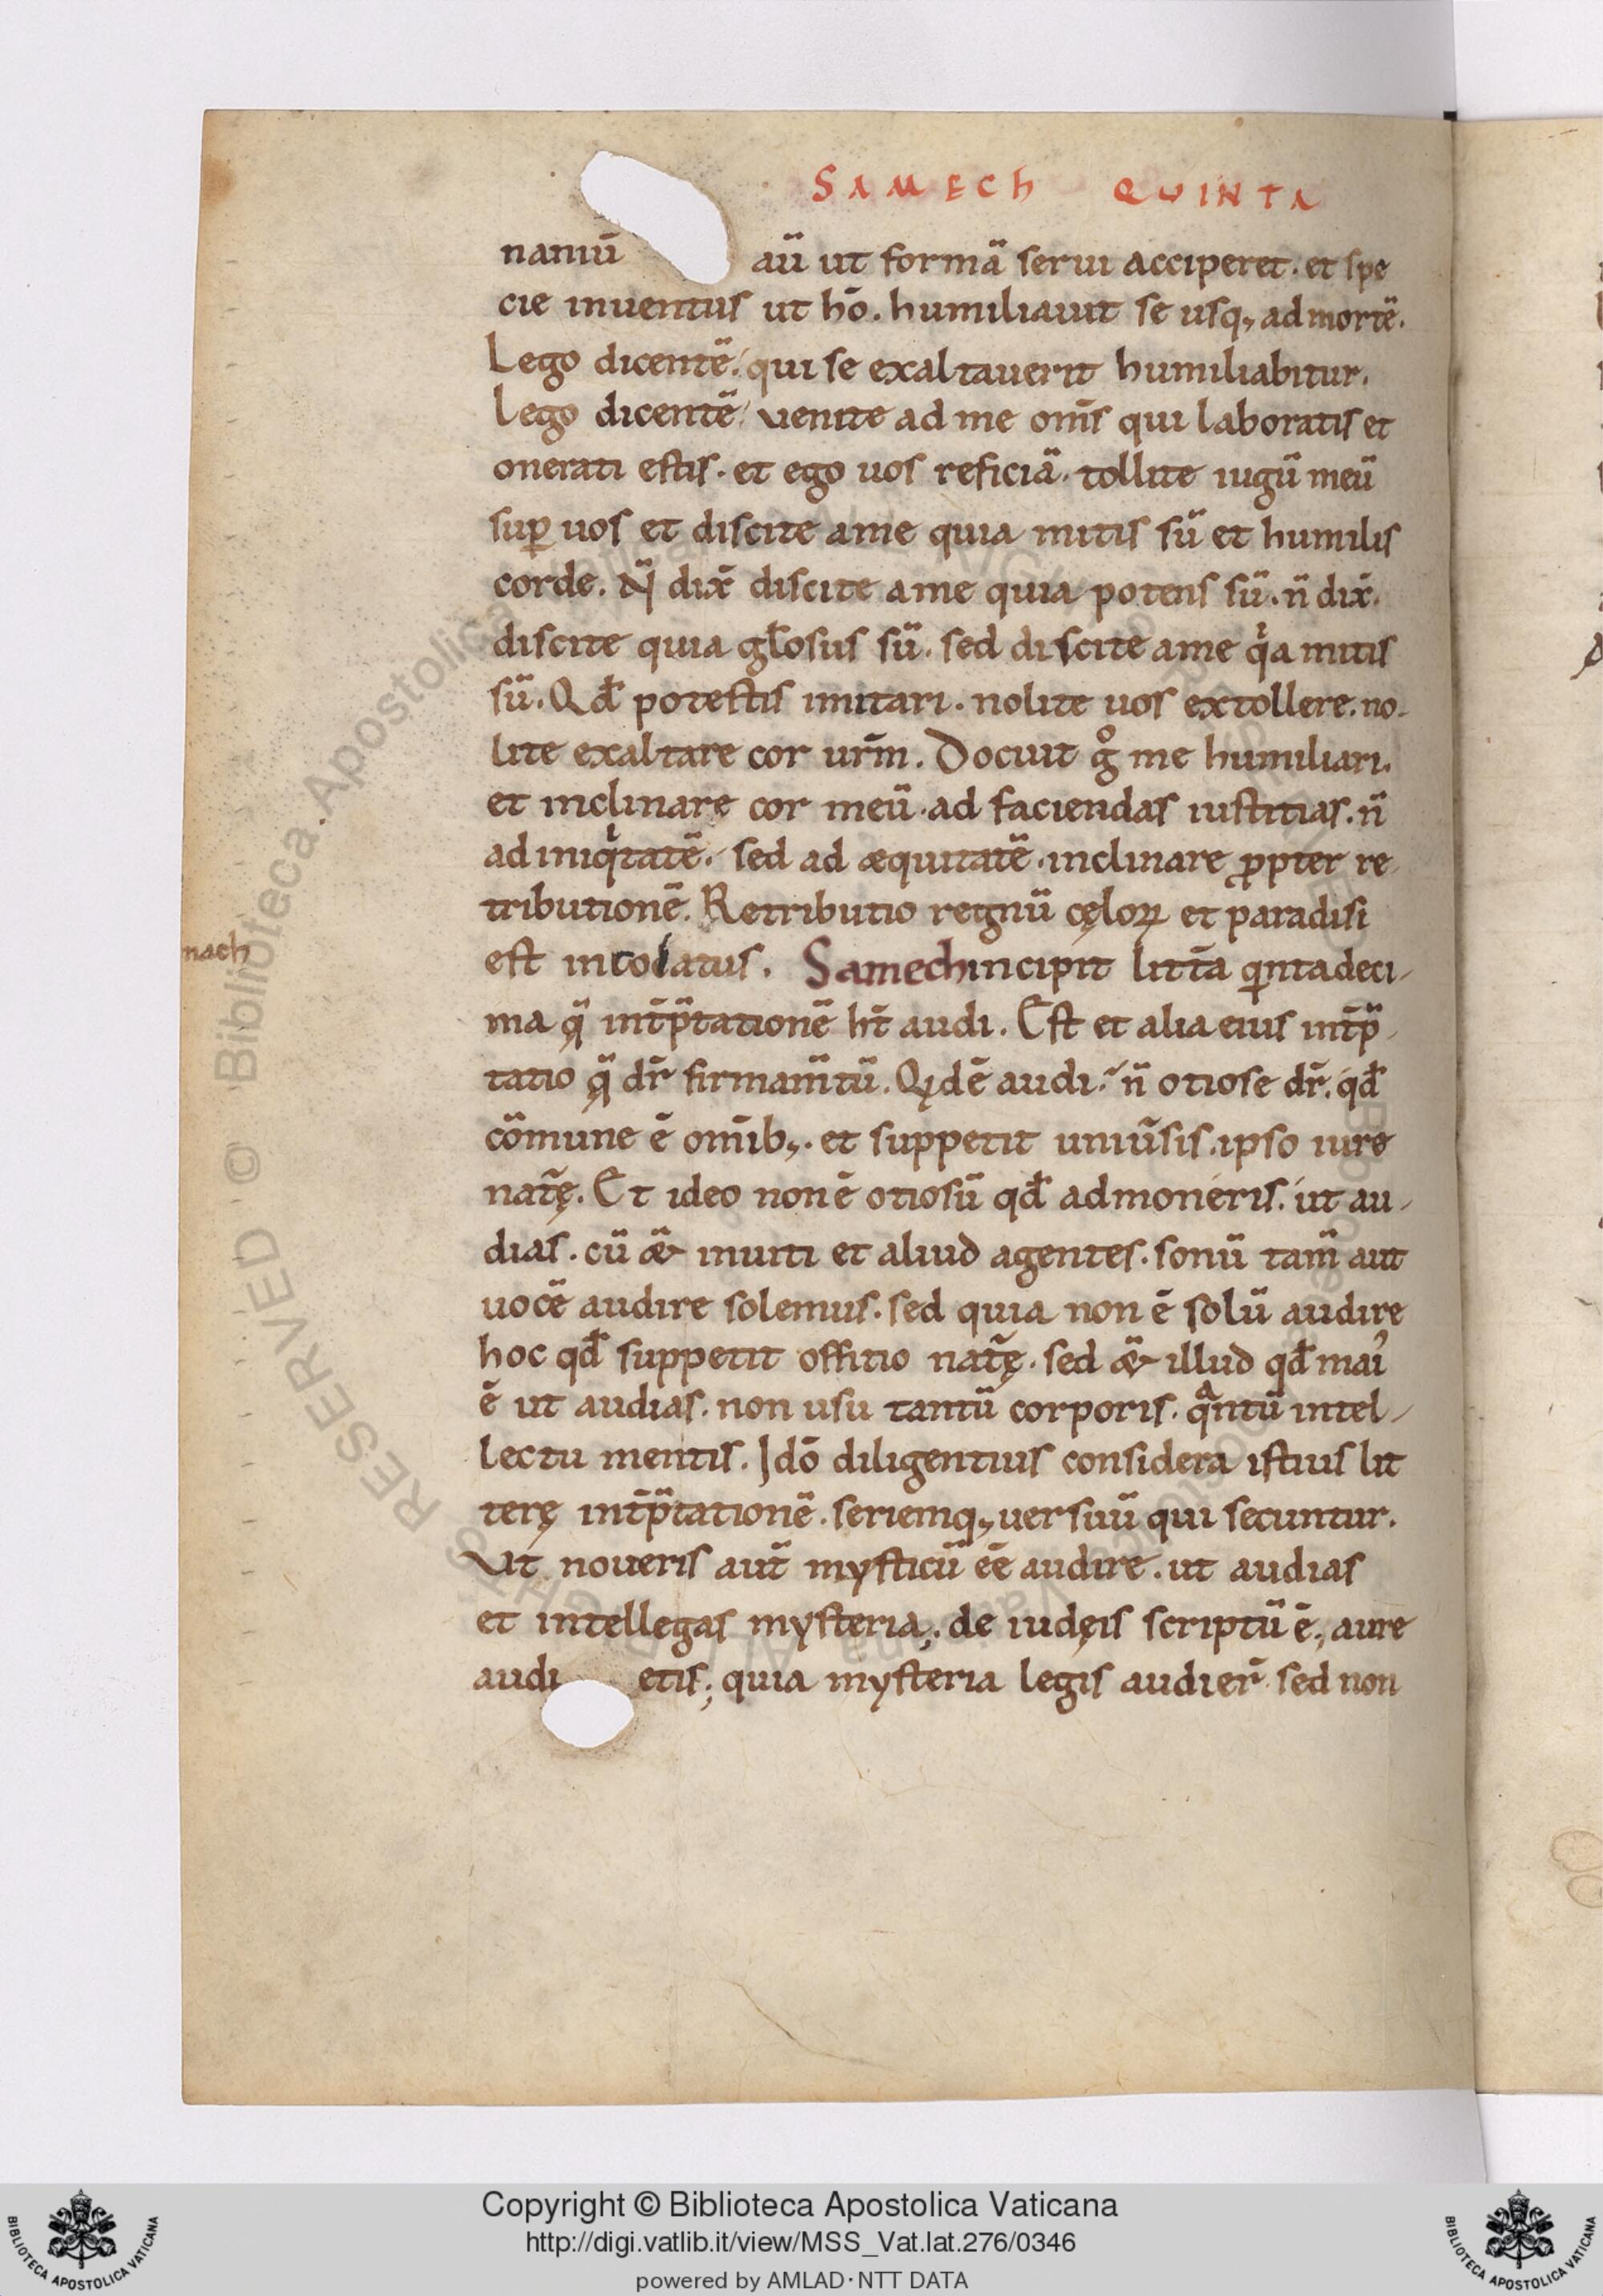 SAMECH QUINTA
naniū aū ut formā serui acciperet. et spe
cie inuentus ut hō. humiliauit se usq; ad mortē.
Lego dicentē. qui se exaltauerit humiliabitur.
Lego dicentē. uenite ad me om̄s qui laboratis et
onerati estis. et ego uos reficiā. tollite iugū meū
suꝑ uos et discite ame quia mitis sū et humilis
corde. N̄ dix̄ discite ame quia potens sū. n̄ dix̄.
discite quia gl̄osus sū. sed discite ame qͥa mitis
sū. Qd̄ potestis imitari. nolite uos extollere. no-
lite exaltare cor ur̄m. Docuit gͦ me humiliari.
et inclinare cor meū. ad faciendas iustitias. n̄
ad iniqͥtatē. sed ad æquitatē. inclinare ꝓpter re
tributionē. Retributio regnū cęloꝝ et paradisi
nach
est incolatus. Samech incipit litt̄a qͥntadeci-
ma q̄ int̄p̄tationē ht̄ audi. Est et alia eius int̄p̄
tatio q̄ dr̄ firmam̄tū. Qidē audi. n̄ otiose dr̄. qd̄
cōmune ē om̄ib;. et suppetit uniūsis. ipso iure
nat̄ę. Et ideo non ē otiosū qd̄ admoneris. ut au-
dias. cū &̄ inuiti et aliud agentes. sonū tam̄ aut
uocē audire solemus. sed quia non ē solū audire
hoc qd̄ suppetit offitio nat̄ę. sed &̄ illud qd̄ mai᾿
ē ut audias. non usu tantū corporis. qᷓntū intel-
lectu mentis. Idō diligentius considera istius lit
terę int̄p̄tationē. seriemq; uersuū qui secuntur.
Ut noueris aut̄ mysticū eē audire. ut audias
et intellegas mysteria. de iudęis scriptū ē. aure
audi etis; quia mysteria legis audier̄ sed non
Copyright © Biblioteca Apostolica Vaticana
http://digi.vatlib.it/view/MSS_Vat.lat.276/0346
powered by AMLAD·NTT DATA
BIBLIOTECA APOSTOLICA VATICANA
BIBLIOTECA APOSTOLICA VATICANA